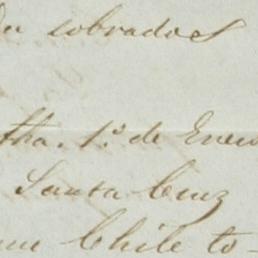 sobrados
tha. 1.º de Enero
Santa Cruz
Chile to-